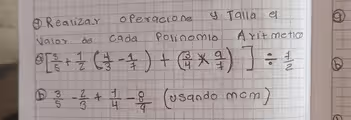 ① Realizar operacione y Talla el
valor de cada Polinomio Aritmetico
ⓐ [3/5 + 1/2 (4/3 - 1/7) + (3/4 × 9/7) ] ÷ 1/2
ⓑ 3/5 - 2/3 + 1/4 - 8/9 (usando mcm)